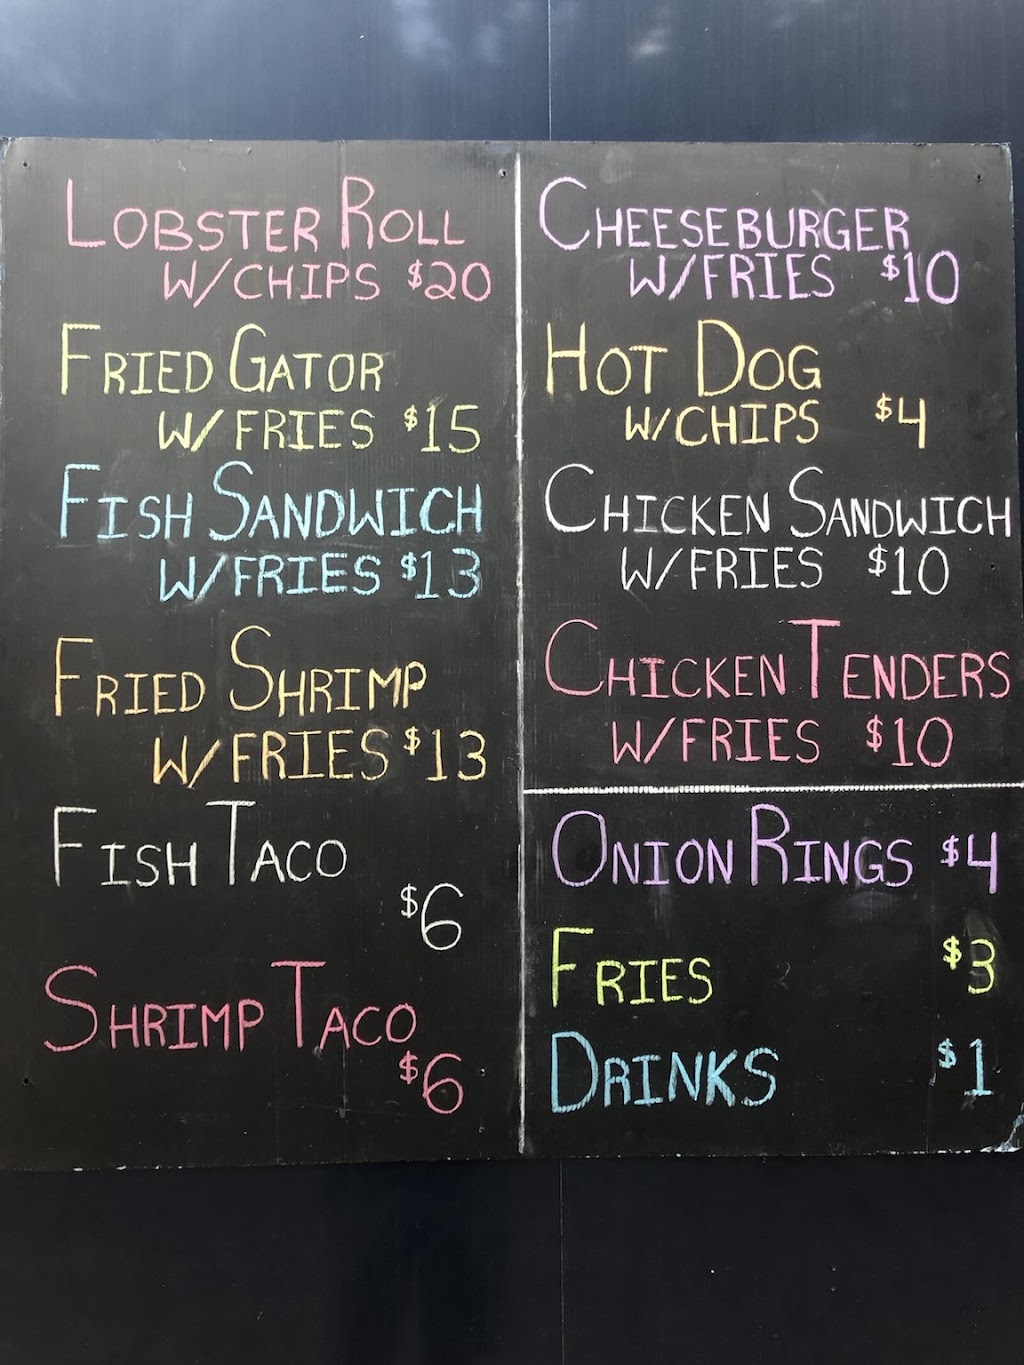 LOBSTER ROLL
W/CHIPS $20
FRIED GATOR
W/FRIES $15
FISH SANDWICH
W/FRIES $13
FRIED SHRIMP
W/FRIES $13
FISH TACO
$6
SHRIMP TACO
$6
CHEESEBURGER
W/FRIES $10
HOT DOG
W/CHIPS $4
CHICKEN SANDWICH
W/FRIES $10
CHICKEN TENDERS
W/FRIES $10
ONION RINGS $4
FRIES $3
DRINKS $1